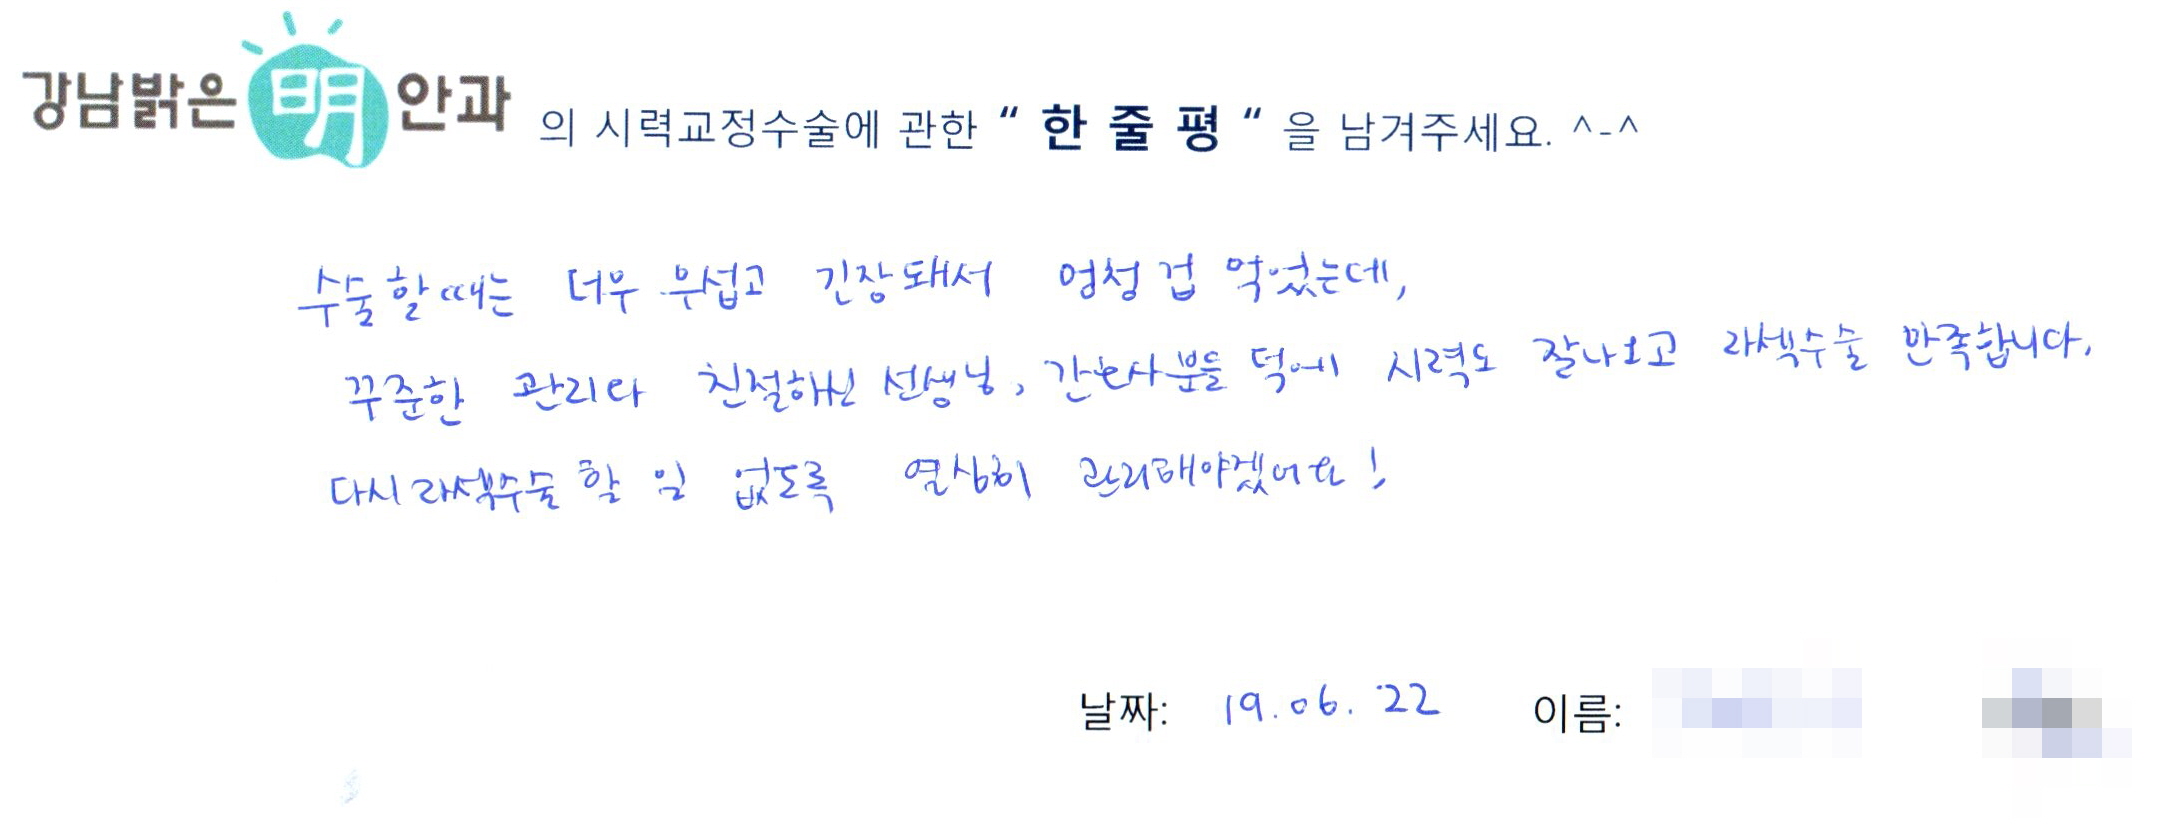 강남밝은明안과 의 시력교정수술에 관한 “ 한 줄 평 “ 을 남겨주세요. ^-^
수술할때는 너무 무섭고 긴장돼서 엄청 겁 먹었는데,
꾸준한 관리와 친절하신 선생님, 간호사분들 덕에 시력도 잘나오고 라섹수술 만족합니다.
다시 라섹수술 할 일 없도록 열심히 관리해야겠어요!
날짜: 19.06.22 이름: